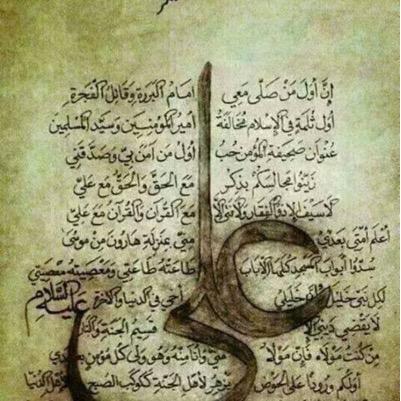 إِنَّ أَوَّلَ مَنْ صَلَّى مَعِي امَامُ الْبَرَرَةِ وَقَاتِلُ الْفَجَرَةِ
أول ثلمة في الإسلام مخالفة أمير المؤمنين وسيد المسلمين
عنوان صحيفة المؤمن حب أول من آمن بي وصدقني
زينوا مجالسكم بذكر مع الحق والحق مع علي
لا سيف إلا ذو الفقار ولا فتى إلا مع القرآن والقرآن مع علي
أعلم أمتي بعدي مني بمنزلة هارون من موسى
سدوا أبواب المسجد كلها إلا باب طاعته طاعتي ومعصيته معصيتي
لكل نبي خليل خليلي أخي في الدنيا والآخرة
علي
عليه السلام
لا يقضي ديني إلا قسيم الجنة والنار
من كنت مولاه فإن مولاه مني وأنا منه وهو ولي كل مؤمن بعدي
أولكم ورودا على الحوض يزهر لأهل الجنة ككوكب الصبح لأهل الدنيا